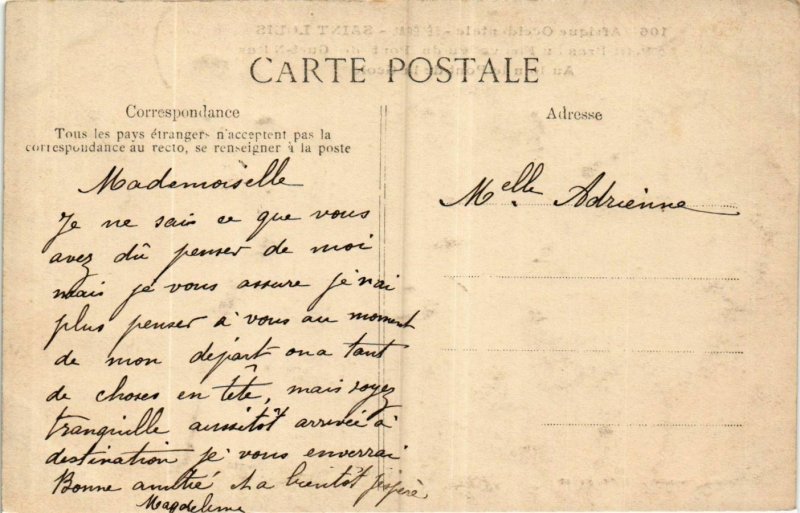 CARTE POSTALE
Correspondance
Tous les pays étrangers n'acceptent pas la
correspondance au recto, se renseigner à la poste
Mademoiselle
Je ne sais ce que vous
avez dû penser de moi
mais je vous assure je n'ai
plus penser à vous au moment
de mon départ on a tant
de choses en tête, mais soyez
tranquille aussitôt arrivée à
destination je vous enverrai
Bonne amitié et a bientôt j'espère
Magdeleine
Adresse
Melle Adrienne